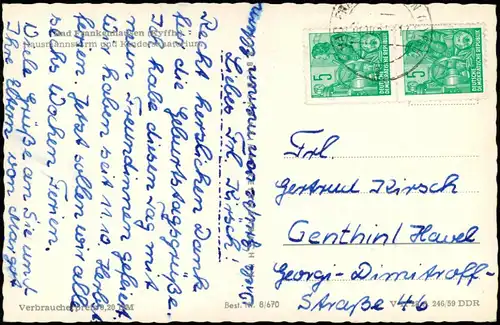 Bad Frankenhausen (Kyffh.)
Hausmannsturm mit Kindersanatorium
Liebes Frl. Kirsch!
Recht herzlichen Dank
für die Geburtstagsgrüße.
Ich habe diesen Tag mit
meinen Freundinnen gefeiert.
Wir haben seit 11.10. Herbst-
ferien. Jetzt sollen wir alle
sechs Wochen Ferien.
Viele Grüße an Sie und
Ihre Eltern von Margot
5
DEUTSCHE
DEMOKRATISCHE REPUBLIK
5
DEUTSCHE
DEMOKRATISCHE REPUBLIK
Frl.
Gertrud Kirsch
Genthin/Havel
Georgi-Dimitroff-
Straße 46
Verbraucherpreis 0,20 DM
Best. Nr. 8/670
246/59 DDR